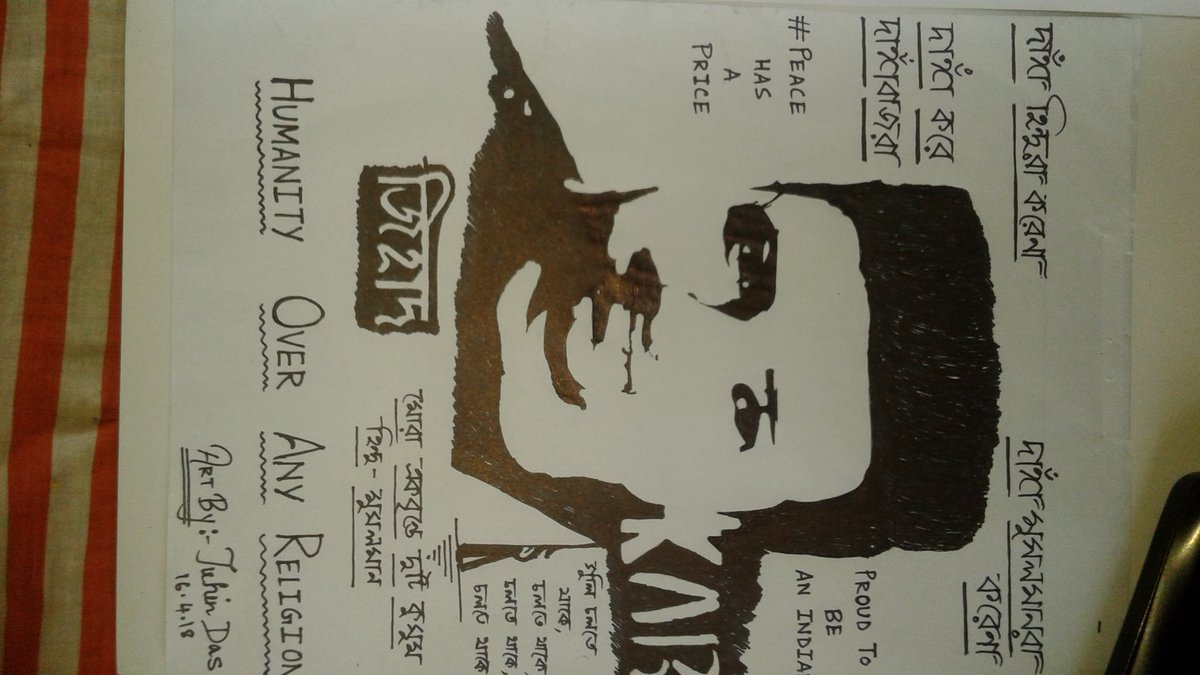 দাঙ্গা হিন্দুরা করেনা
দাঙ্গা মুসলমানরা
করেনা
দাঙ্গা করে
দাঙ্গাবাজরা
#PEACE
HAS
A
PRICE
PROUD TO
BE
AN INDIA
চলতে
থাকে,
চলতে থাকে,
চলতে থাকে,
চলতে থাকে
জিহাদ
মোরা একবৃন্তে দুটি কুসুম
হিন্দু-মুসলমান
HUMANITY OVER ANY RELIGION
ART By:- Tuhin Das
16.4.18